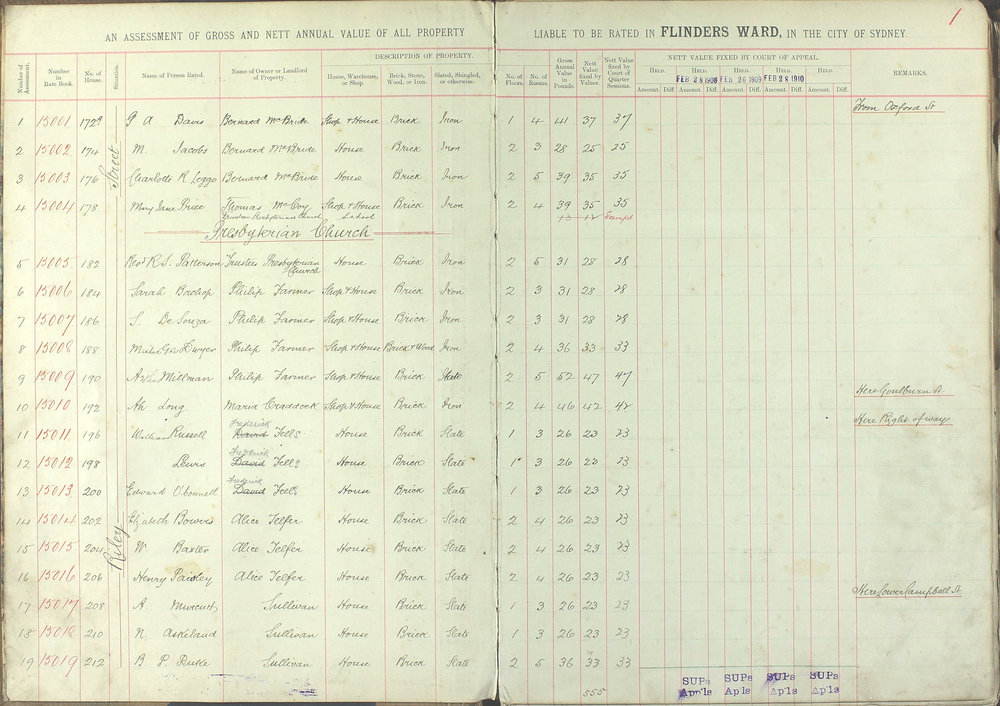 1
AN ASSESSMENT OF GROSS AND NETT ANNUAL VALUE OF ALL PROPERTY LIABLE TO BE RATED IN FLINDERS WARD, IN THE CITY OF SYDNEY.
DESCRIPTION OF PROPERTY. NETT VALUE FIXED BY COURT OF APPEAL.
Number of Assessment. Number in Rate Book. No. of House. Situation. Name of Person Rated. Name of Owner or Landlord of Property. House, Warehouse, or Shop. Brick, Stone, Wood, or Iron. Slated, Shingled, or otherwise. No. of Floors. No. of Rooms. Gross Annual Value in Pounds. Nett Value fixed by Valuer. Nett Value fixed by Court of Quarter Sessions. HELD. HELD. HELD. HELD. HELD. REMARKS.
FEB 28 1908 FEB 26 1909 FEB 28 1910
Amount. Diff. Amount. Diff. Amount. Diff. Amount. Diff. Amount. Diff.
From Oxford St
1 15001 172a G A Davis Bernard McBride Shop & House Brick Iron 1 4 41 37 37
2 15002 174 M. Jacobs Bernard McBride House Brick Iron 2 3 28 25 25
3 15003 176 Charlotte R Leggo Bernard McBride House Brick Iron 2 5 39 35 35
4 15004 178 Mary Jane Price Thomas McCoy Shop & House Brick Iron 2 4 39 35 35
Trustees Presbyterian Church School 13 12 Exempt
Presbyterian Church
5 15005 182 Revd R. S. Patterson Trustees Presbyterian Church House Brick Iron 2 5 31 28 28
6 15006 184 Sarah Philip Farmer Shop & House Brick Iron 2 3 31 28 28
7 15007 186 S. De Souza Philip Farmer Shop & House Brick Iron 2 3 31 28 28
8 15008 188 Dwyer Philip Farmer Shop & House Brick & Wood Iron 2 4 36 33 33
9 15009 190 Arthur Millman Philip Farmer Shop & House Brick Slate 2 5 52 47 47
Here Goulburn St
10 15010 192 Ah Long Maria Craddock Shop & House Brick Iron 2 4 46 42 42
Here Right of way
11 15011 196 William Russell David Frederick Fells House Brick Slate 1 3 26 23 23
12 15012 198 Lewis David Frederick Fells House Brick Slate 1 3 26 23 23
13 15013 200 Edward O'Connell David Frederick Fells House Brick Slate 1 3 26 23 23
14 15014 202 Elizabeth Bowers Alice Telfer House Brick Slate 2 4 26 23 23
15 15015 204 W Baxter Alice Telfer House Brick Slate 2 4 26 23 23
16 15016 206 Henry Paisley Alice Telfer House Brick Slate 2 4 26 23 23
Here Lower Campbell St
17 15017 208 A. Murcutt Sullivan House Brick Slate 1 3 26 23 23
18 15018 210 N. Askeland Sullivan House Brick Slate 1 3 26 23 23
19 15019 212 B P. Duke Sullivan House Brick Slate 2 5 36 33 33
Riley Street
555
SUPs SUPs SUPs SUPs
Ap'ls Ap'ls Ap'ls Ap'ls